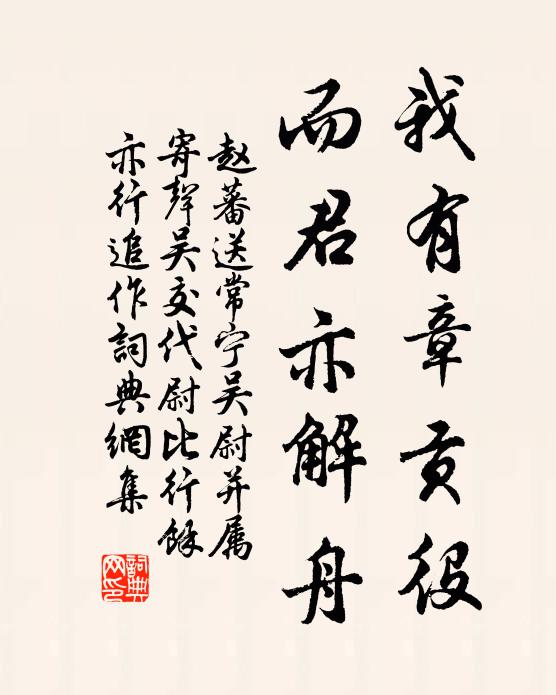 我有章贡役
而君亦解舟
赵蕃送常宁吴尉并属
寄声吴交代尉比行馀
亦行追作詞典網集
詞典网印